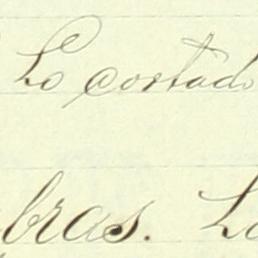 Lo cortado
bras. Lo